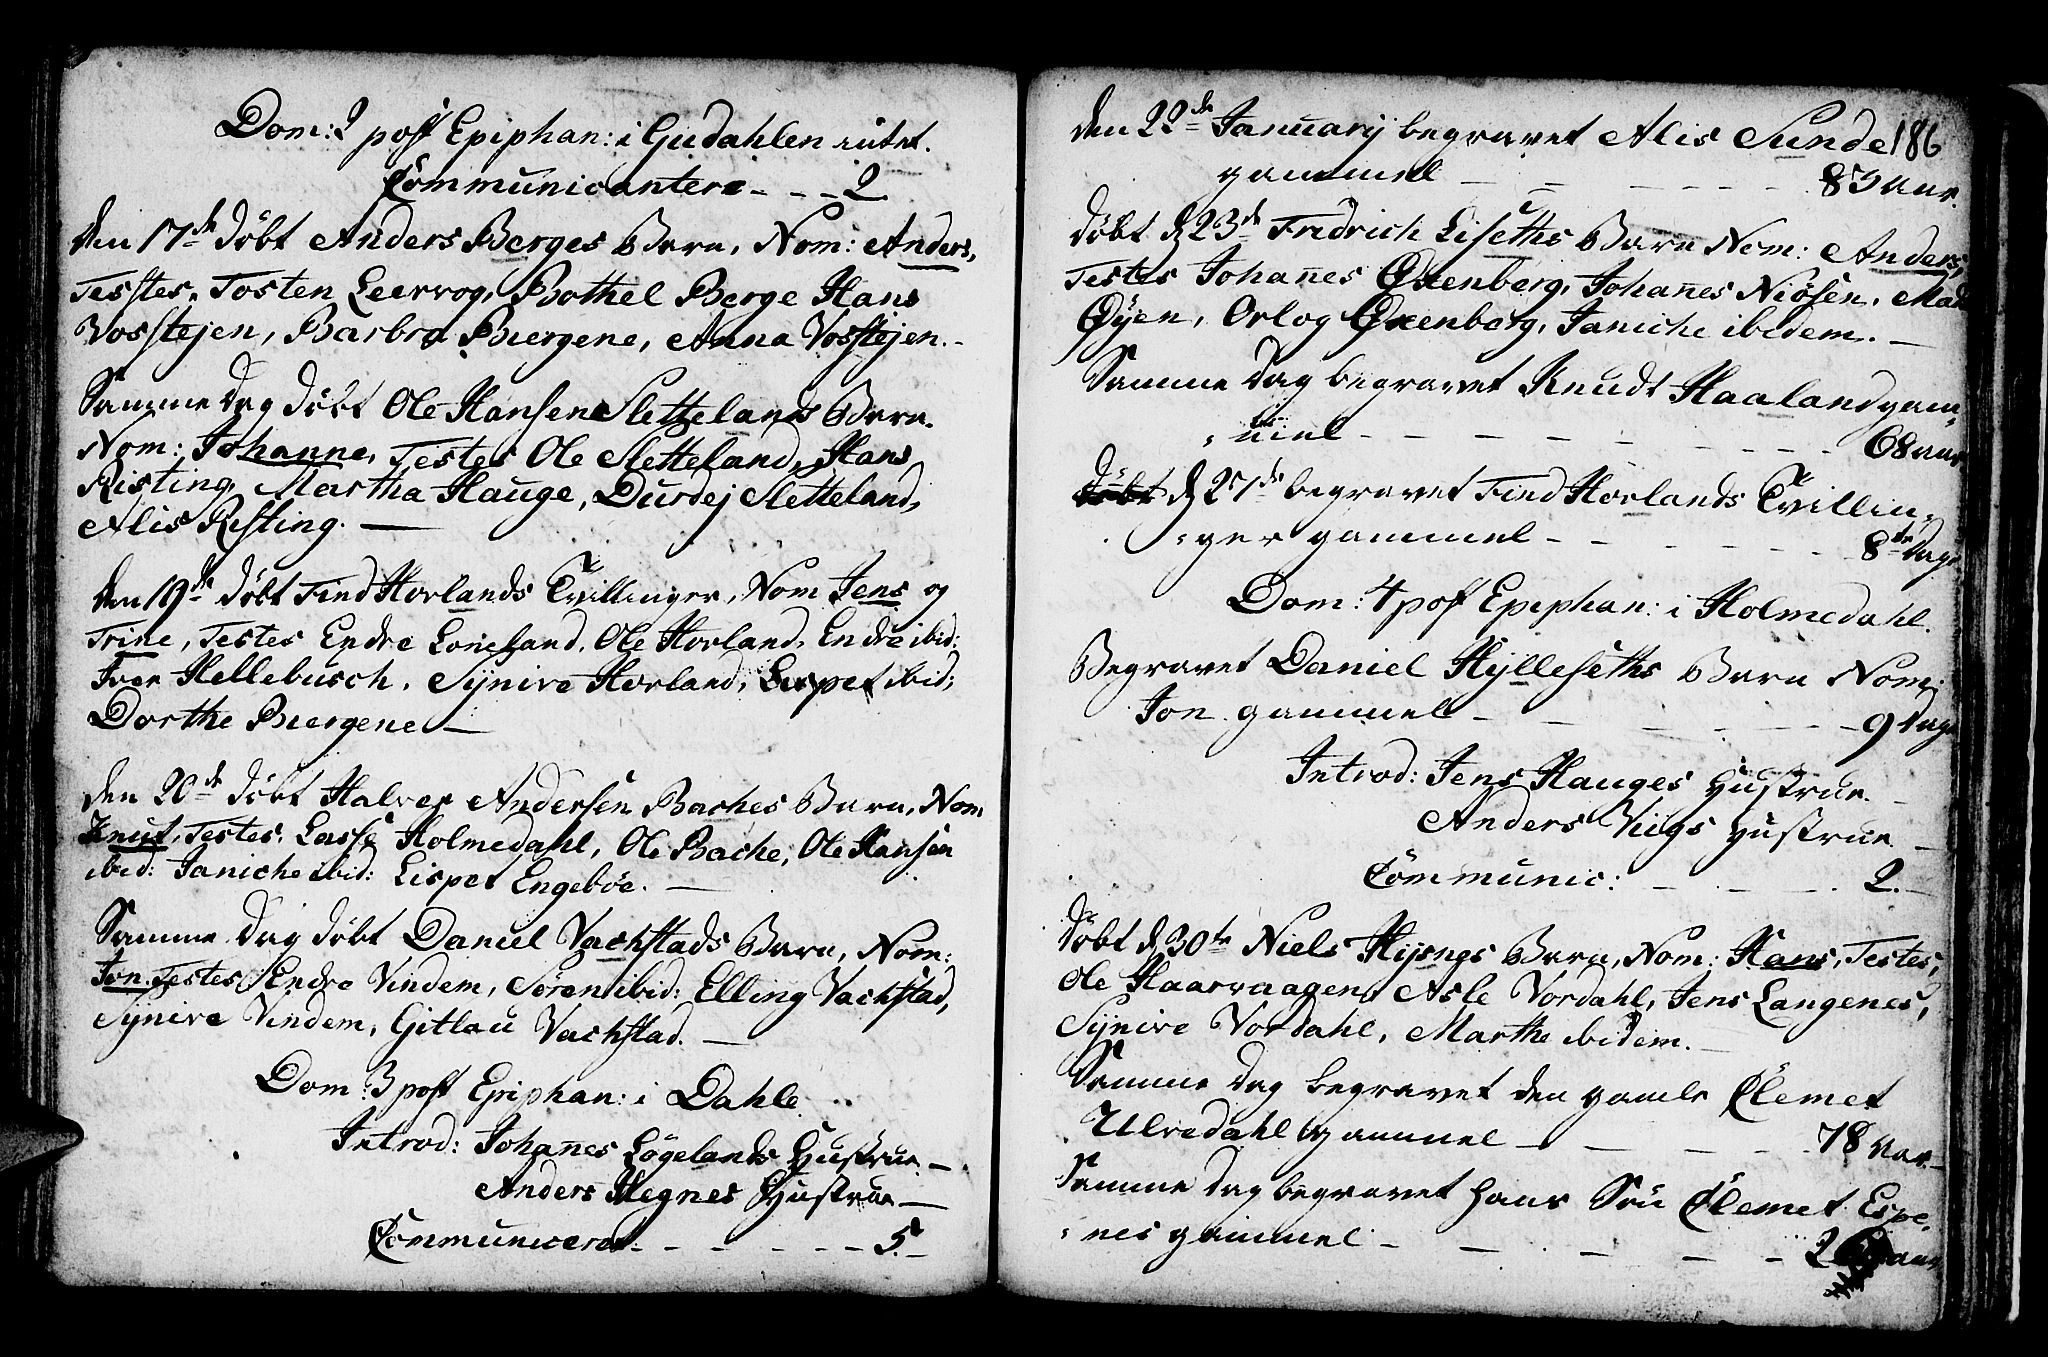 Dom: 2 post Epiphan: i Gudahlen intet.
Communicantere - - - 2
den 17de døbt Anders Berges Barn, Nom: Anders,
Testes, Tosten Leervog, Bothel Berge Hans
Vosstejen, Barbra Biergene, Anna Vosstejen.-
Samme dag døbt Ole Hansen Slettelands Barn.
Nom: Johanne, Testes Ole Sletteland, Hans
Risting, Martha Hauge, Durdej Sletteland,
Alis Risting.
den 19de døbt Find Hovlands Tvillinger, Nom Jens og
Trine, Testes Endre Loneland, Ole Hovland, Endre ibid:
Iver Hellebusch, Synive Hovland, Lispet ibid;
Dorthe Biergene
den 20de døbt Halver Andersen Baches Barn, Nom
Knut, Testes, Lasse Holmedahl, Ole Bache, Ole Hansen
ibid: Janiche ibid: Lispet Engebøe.
Samme dag døbt Daniel Vachstads Barn, Nom:
Jon. Testes Endre Vindem, Søren ibid: Elling Vachstad,
Synive Vindem, Gitlau Vachstad.
Dom: 3 post Epiphan: i Dahle
Introd: Johanes Løgelands Hustrue.
Anders Hegnes Hustrue
Communiceret - - - - - 5.
186
den 22de January begravet Alis Sunde
gammel - - - - 83 aar.
døbt d 23de Fredrich Liseths Barn Nom: Anders,
Testes Johanes Oxenberg, Johanes Niøsen, Mads
Øyen, Orlog Oxenberg, Janiche ibidem.
Samme dag begravet Knudt Haaland gam-
mel - - - - 68 aar
døbt d 27de begravet Find Hovlands Tvillin-
ger gammel - - - - 8te dage
Dom: 4 post Epiphan: i Holmedahl.
Begravet Daniel Hylleseths Barn Nom:
Jon gammel - - - - 9 dage
Introd: Jens Hauges Hustrue.
Anders Viigs Hustrue
Communic: - - - 2.
døbt d 30te Niels Hysnes Barn, Nom: Hans, Testes,
Ole Haarvaagen, Asle Vordahl, Jens Langenes,
Synive Vordahl, Marthe ibidem.
Samme dag begravet den gamle Clemet
Ulvedahl gammel - - - 78 aar.
Samme dag begravet hans Søn Clemet Espe-
nes gammel - - - - 2 aar